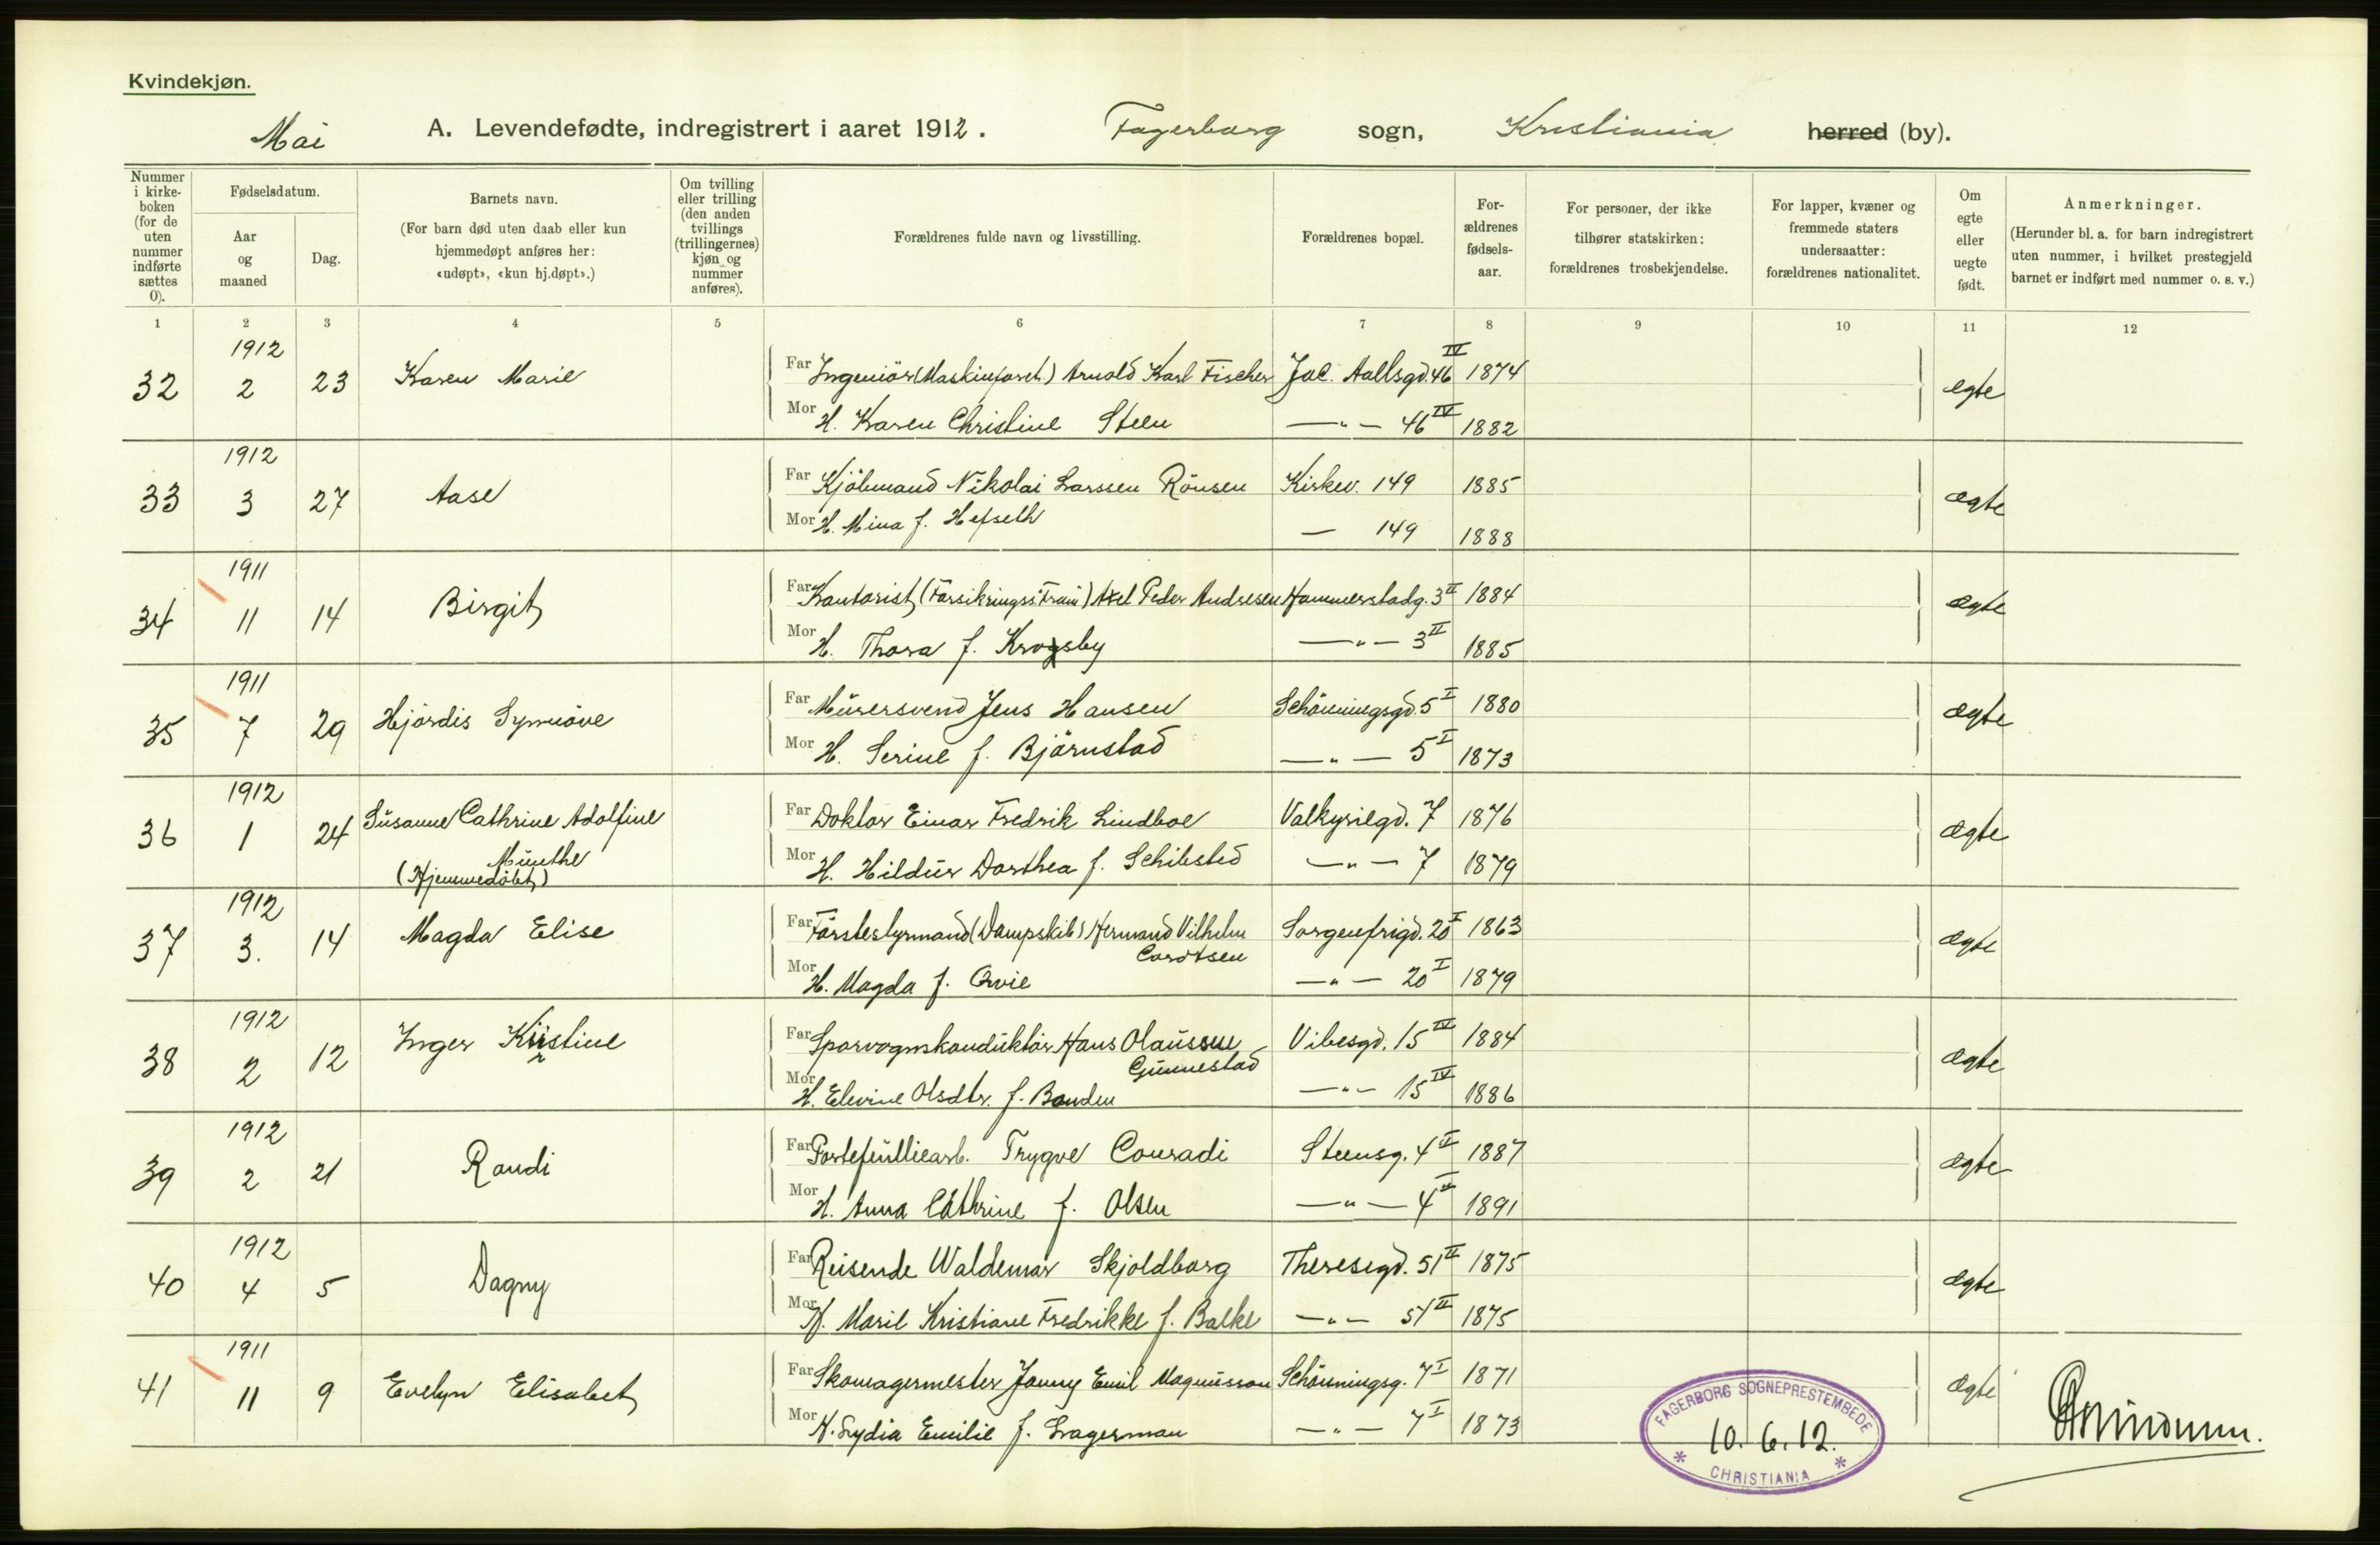 Kvindekjøn.
Mai A. Levendefødte, indregistrert i aaret 1912. Fagerborg sogn, Kristiania herred (by).
Nummer i kirkeboken (for de uten nummer indførte sættes 0).
Fødselsdatum.
Aar og maaned
Dag.
Barnets navn.
(For barn død uten daab eller kun hjemmedøpt anføres her: «udøpt», «kun hj.døpt».)
Om tvilling eller trilling (den anden tvillings (trillingernes) kjøn og nummer anføres).
Forældrenes fulde navn og livsstilling.
Forældrenes bopæl.
Forældrenes fødselsaar.
For personer, der ikke tilhører statskirken: forældrenes trosbekjendelse.
For lapper, kvæner og fremmede staters undersaatter: forældrenes nationalitet.
Om egte eller uegte født.
Anmerkninger.
(Herunder bl. a. for barn indregistrert uten nummer, i hvilket prestegjeld barnet er indført med nummer o. s. v.)
1 2 3 4 5 6 7 8 9 10 11 12
1912
32 2 23 Karen Marie Far Ingeniör (Maskinforret.) Arnold Karl Fischer Jac. Aallsgd. 46 IV 1874 egte
Mor H. Karen Christine Steen —"— 46 IV 1882
1912
33 3 27 Aase Far Kjöbmand Nikolai Larssen Rönsen Kirkev. 149 1885 ægte
Mor H. Mina f. Hefseth — 149 1888
1911
34 11 14 Birgit Far Kontorist (Forsikringss. Fram) Axel Peder Andresen Hammerstadg. 3 II 1884 ægte
Mor H. Thora f. Krogsby —"— 3 II 1885
1911
35 7 29 Hjördis Synnöve Far Murersvend Jens Hansen Schönningsgd. 5 I 1880 ægte
Mor H. Serine f. Björnstad —"— 5 I 1873
1912
36 1 24 Susanne Cathrine Adolfine Munthe (Hjemmedöbt) Far Doktor Einar Fredrik Lindboe Valkyriegd. 7 1876 ægte
Mor H. Hildur Dorthea f. Schibsted —"— 7 1879
1912
37 3. 14 Magda Elise Far Förstestyrmand (Dampskib) Hermand Vilhelm Cordtsen Sorgenfrigd. 20 I 1863 ægte
Mor H. Magda f. Qvie —"— 20 I 1879
1912
38 2 12 Inger Kristine Far Sporvognskonduktör Hans Olaussen Gunnestad Vibesgd. 15 IV 1884 ægte
Mor H. Elevine Olsdtr. f. Bonden —"— 15 IV 1886
1912
39 2 21 Randi Far Portefulliearb. Trygve Conradi Steensg. 4 II 1887 ægte
Mor H. Anna Cathrine f. Olsen —"— 4 II 1891
1912
40 4 5 Dagny Far Reisende Waldemar Skjoldborg Theresegd. 51 II 1875 ægte
Mor H. Marie Kristiane Fredrikke f. Balke —"— 51 II 1875
1911
41 11 9 Evelyn Elisabet Far Skomagermester Jonny Emil Magnusson Schönningsg. 7 I 1871 ægte
Mor H. Lydia Emilie f. Lagerman —"— 7 I 1873
FAGERBORG SOGNEPRESTEMBEDE
10.6.12.
CHRISTIANIA